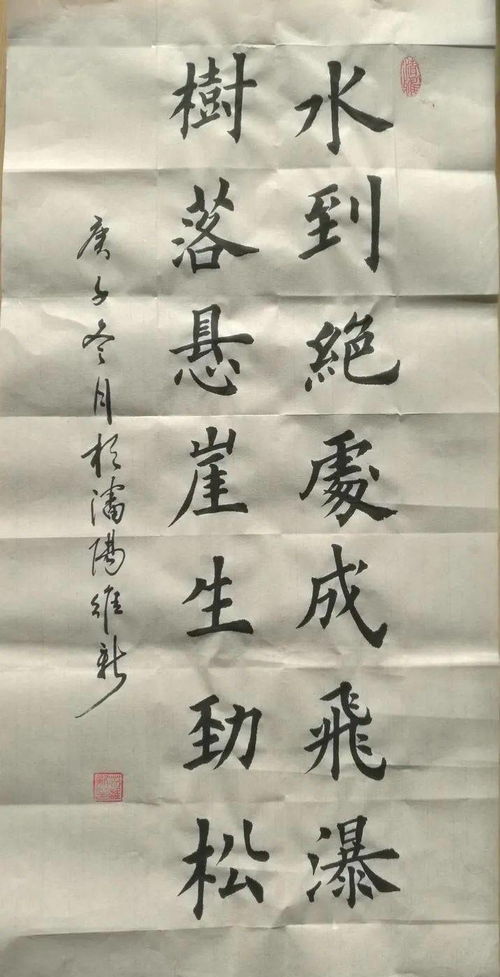 水到絕處成飛瀑
樹落悬崖生勁松
庚子冬月於瀋陽維新